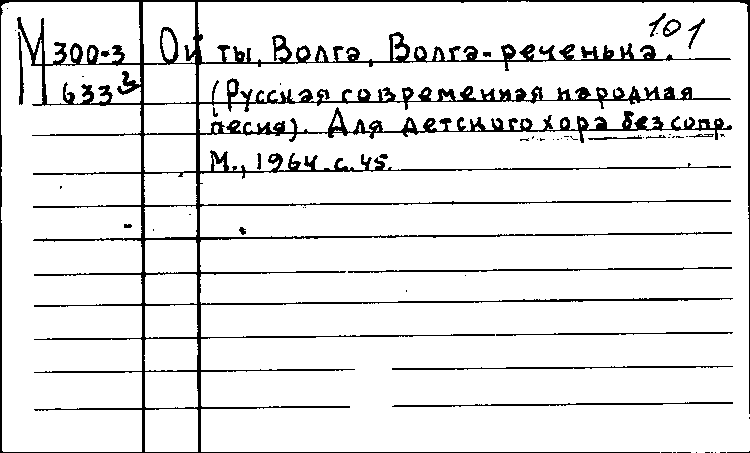 101
М 300-3 Ой ты, Волга, Волга-реченька.
633² (Русская современная народная
песня). Для детского хора без сопр.
М., 1964. с. 45.